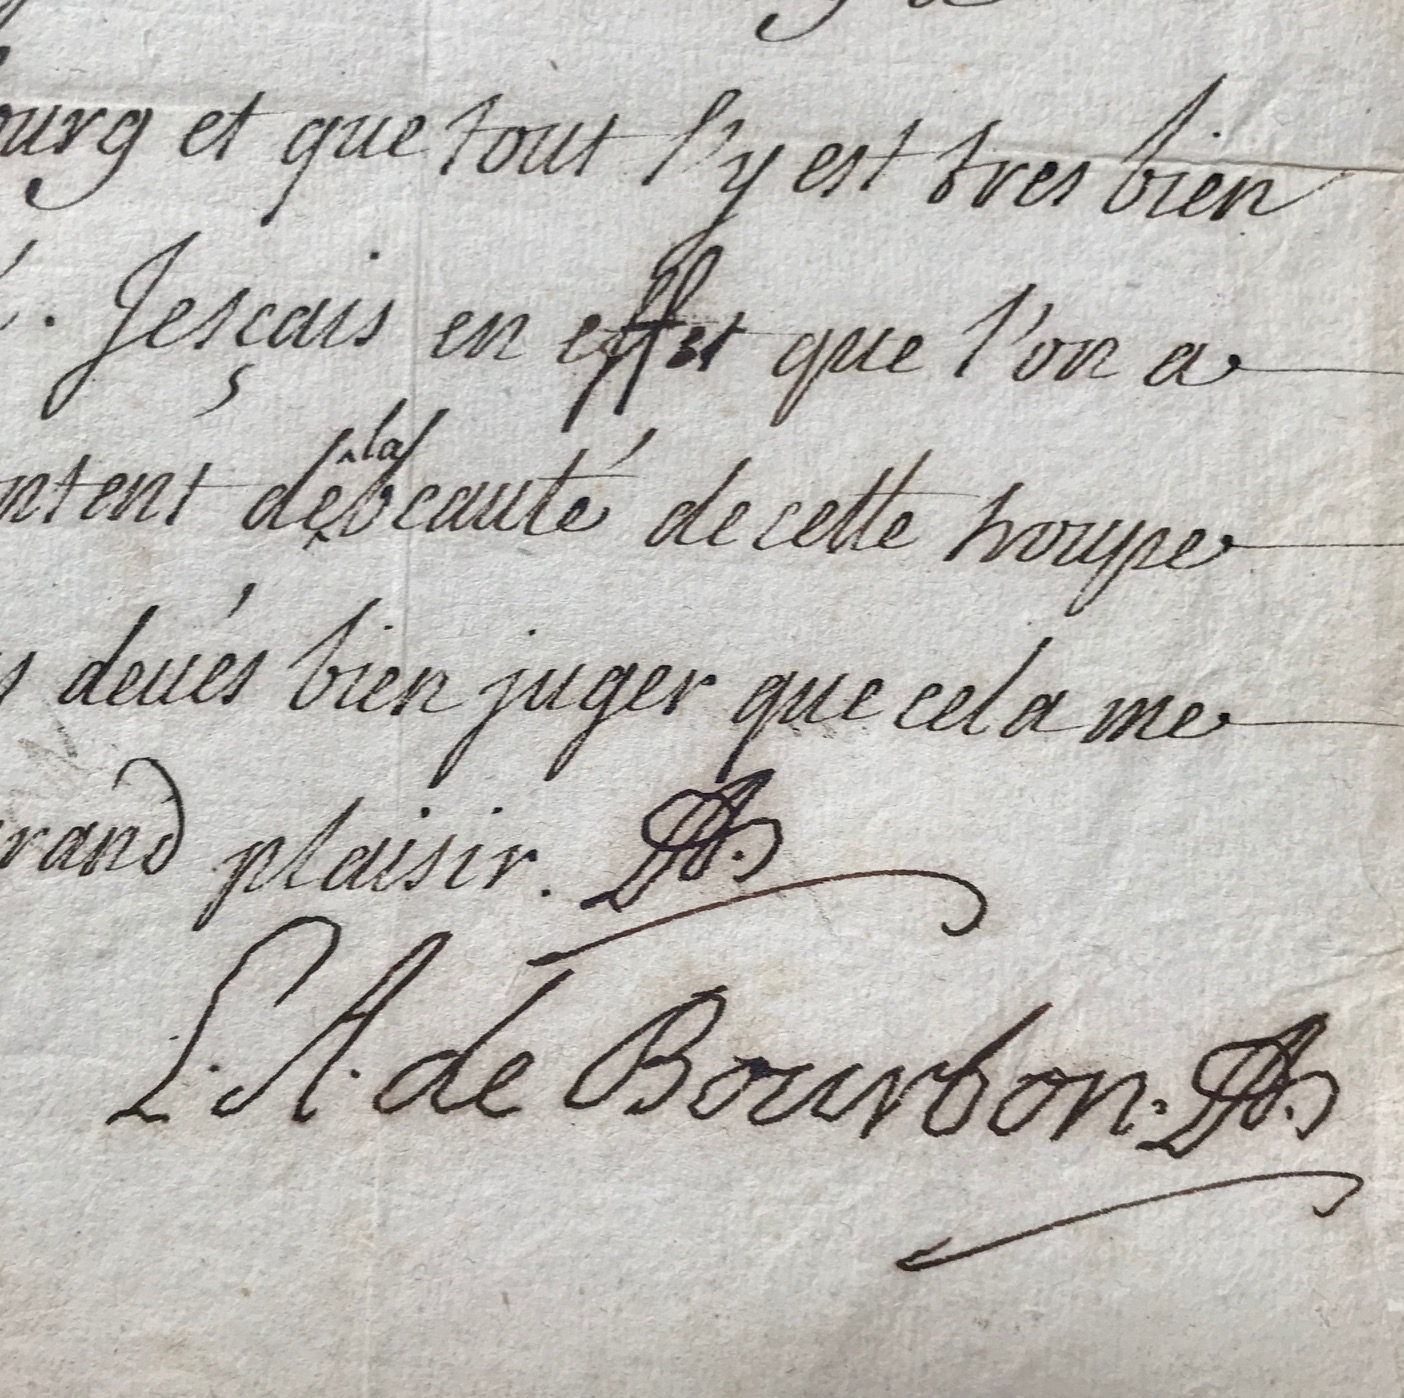 ourg et que tout s'y est tres bien
. Je sçais en effet que l'on a
ntent de la beauté de cette troupe
s deués bien juger que cela me
rand plaisir.
L. A. de Bourbon.